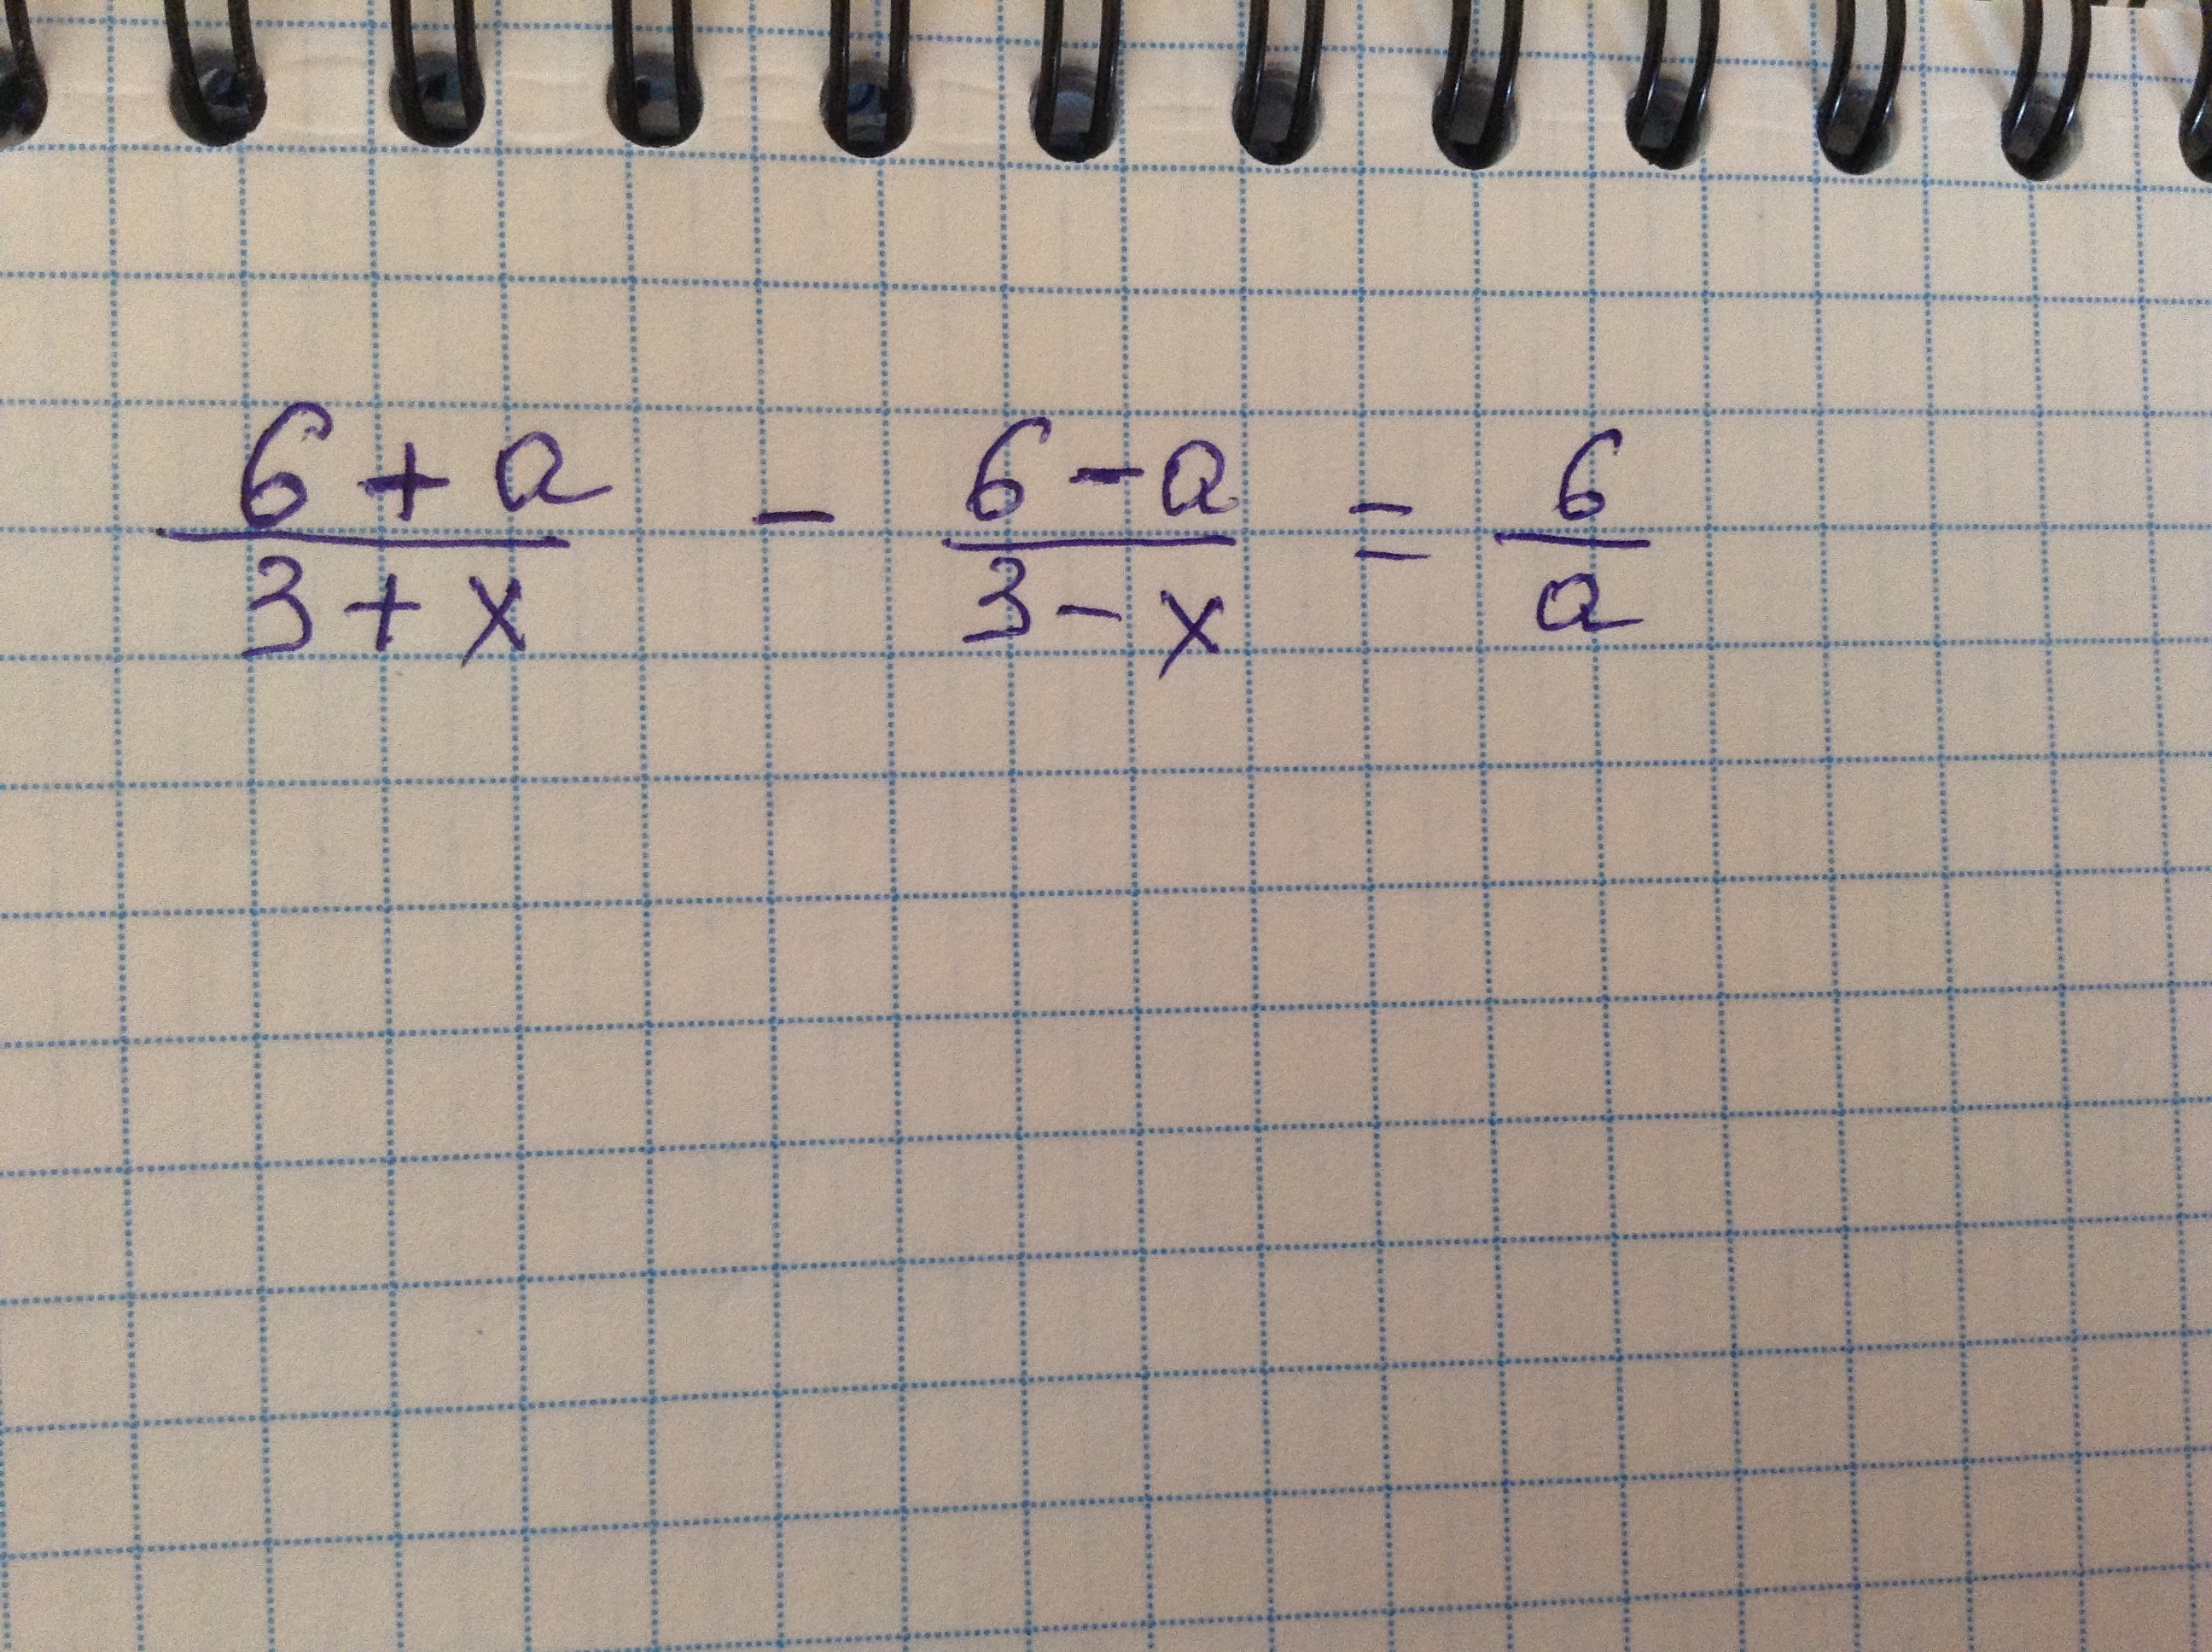 6 + a / 3 + x - 6 - a / 3 - x = 6 / a